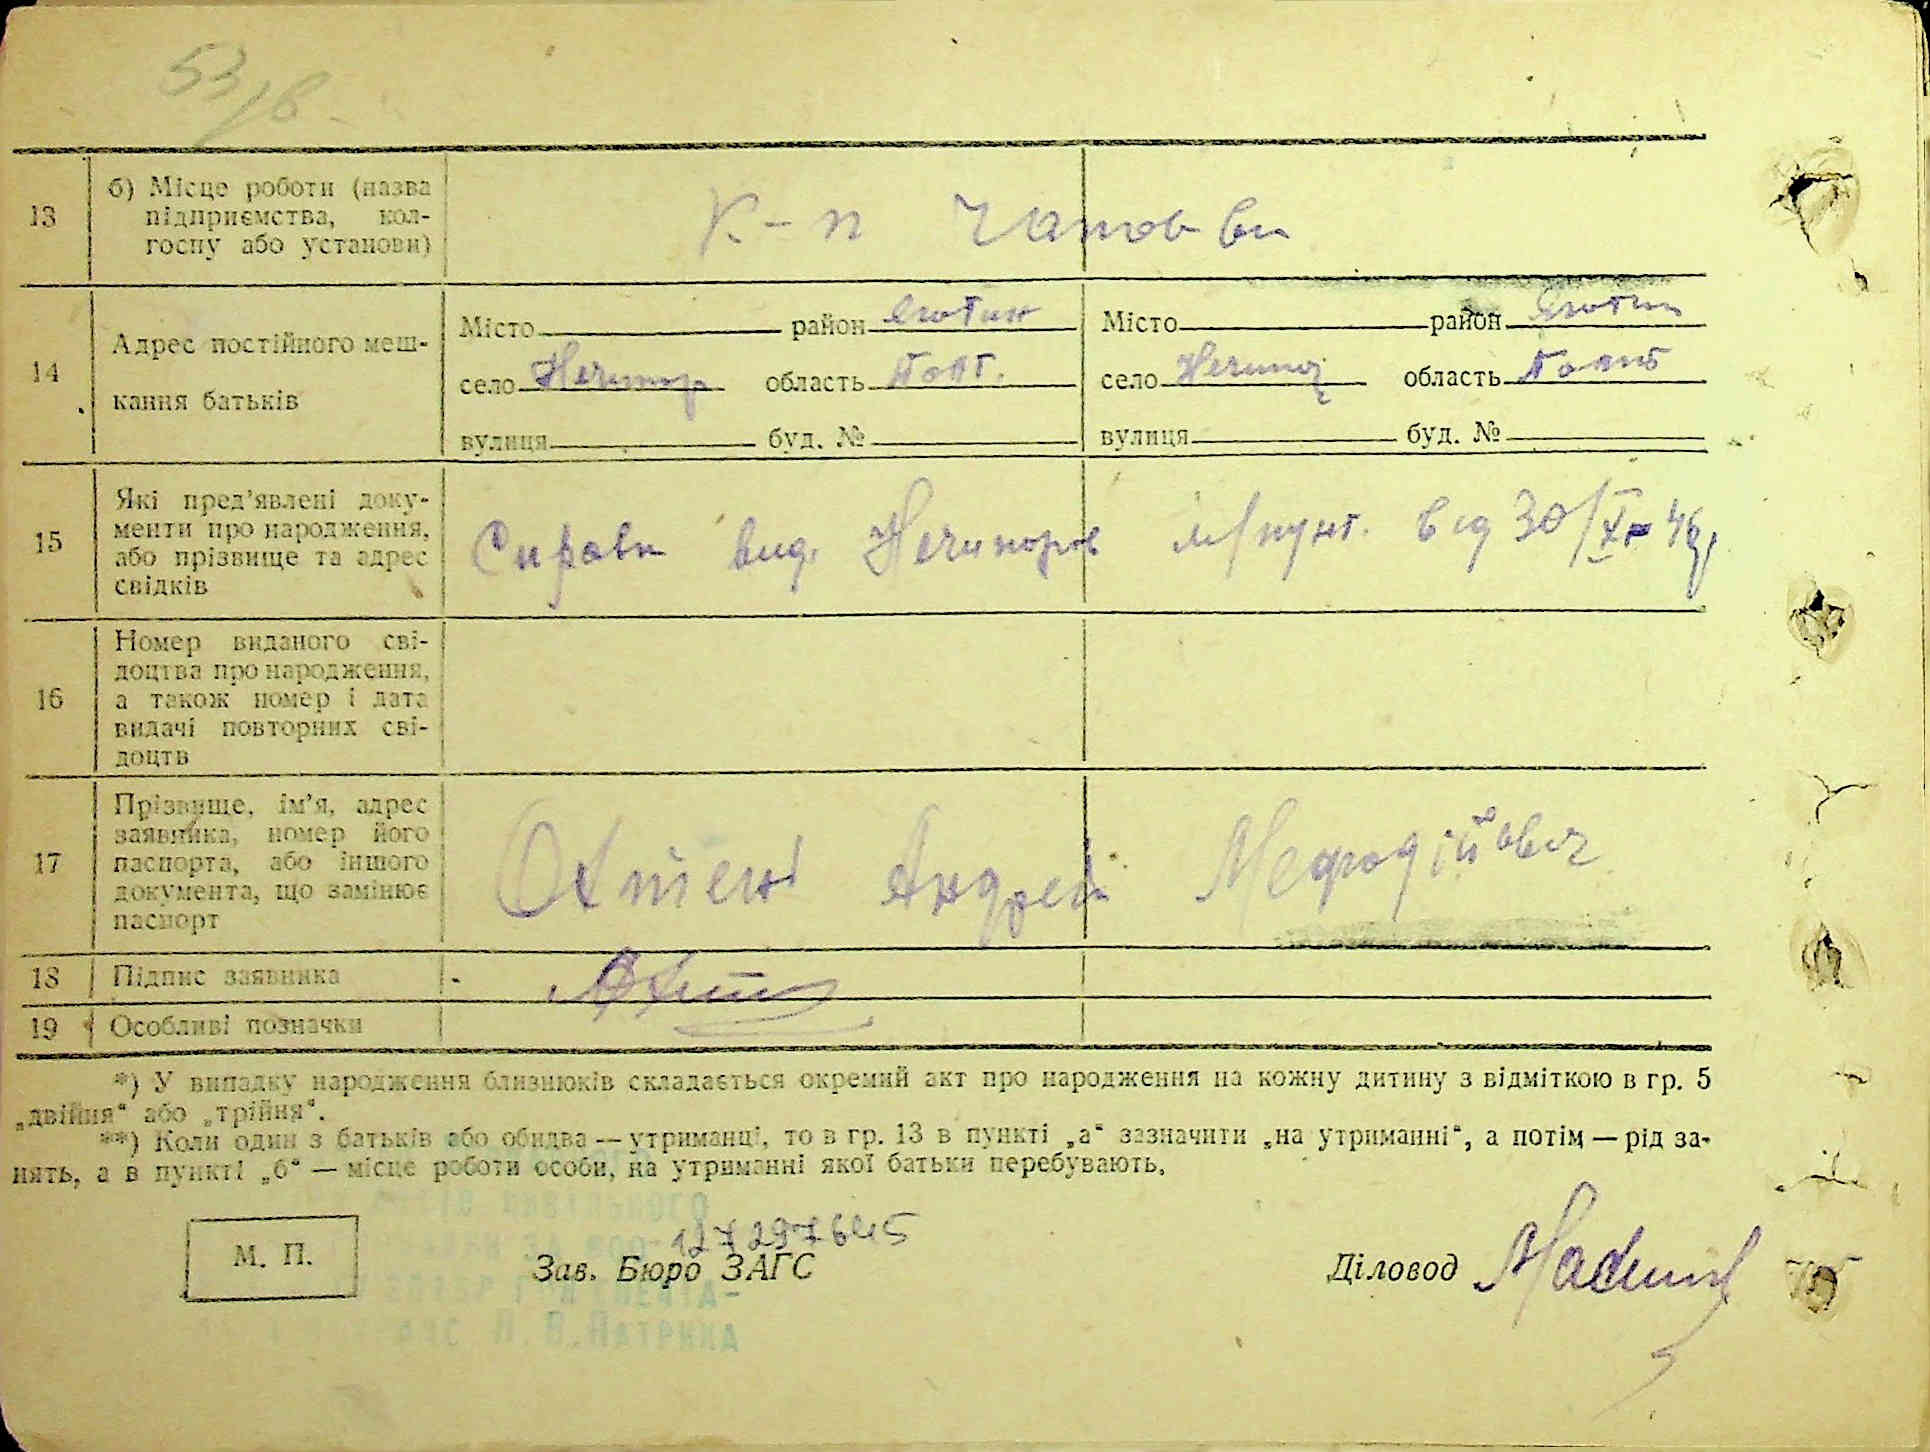 53/в.
13 б) Місце роботи (назва
підприємства, кол-
госпу або установи)
К-п Чапов ви
14 Адрес постійного меш-
кання батьків
Місто район Яготин Місто район Яготин
село Нечипор область Полт. село Нечипор область Полт
вулиця буд. № вулиця буд. №
15 Які пред'явлені доку-
менти про народження,
або прізвище та адрес
свідків
Справк вид. Нечипоров м/пунт. від 30/X 46р
16 Номер виданого сві-
доцтва про народження,
а також номер і дата
видачі повторних сві-
доцтв
17 Прізвище, ім'я, адрес
заявника, номер його
паспорта, або іншого
документа, що замінює
паспорт
Андрей Мефодійович
18 Підпис заявника
19 Особливі позначки
*) У випадку народження близнюків складається окремий акт про народження на кожну дитину з відміткою в гр. 5
„двійня“ або „трійня“.
**) Коли один з батьків або обидва — утриманці, то в гр. 13 в пункті „а“ зазначити „на утриманні“, а потім — рід за-
нять, а в пункті „б“ — місце роботи особи, на утриманні якої батьки перебувають.
М. П.
Зав. Бюро ЗАГС
Діловод